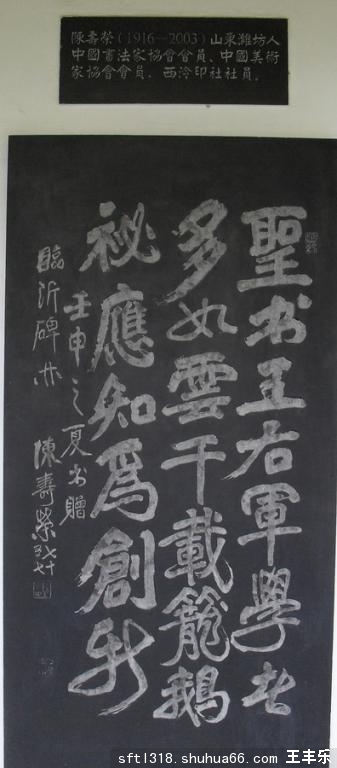 陳壽榮(1916—2003)山東濰坊人
中國書法家協會會員、中國美術
家協會會員、西泠印社社員。
聖书王右軍學者
多如雲千載籠鵝
祕應知爲創新
壬申之夏书贈
臨沂碑林 陳壽榮
sftl318.shuhua66.com 王丰乐